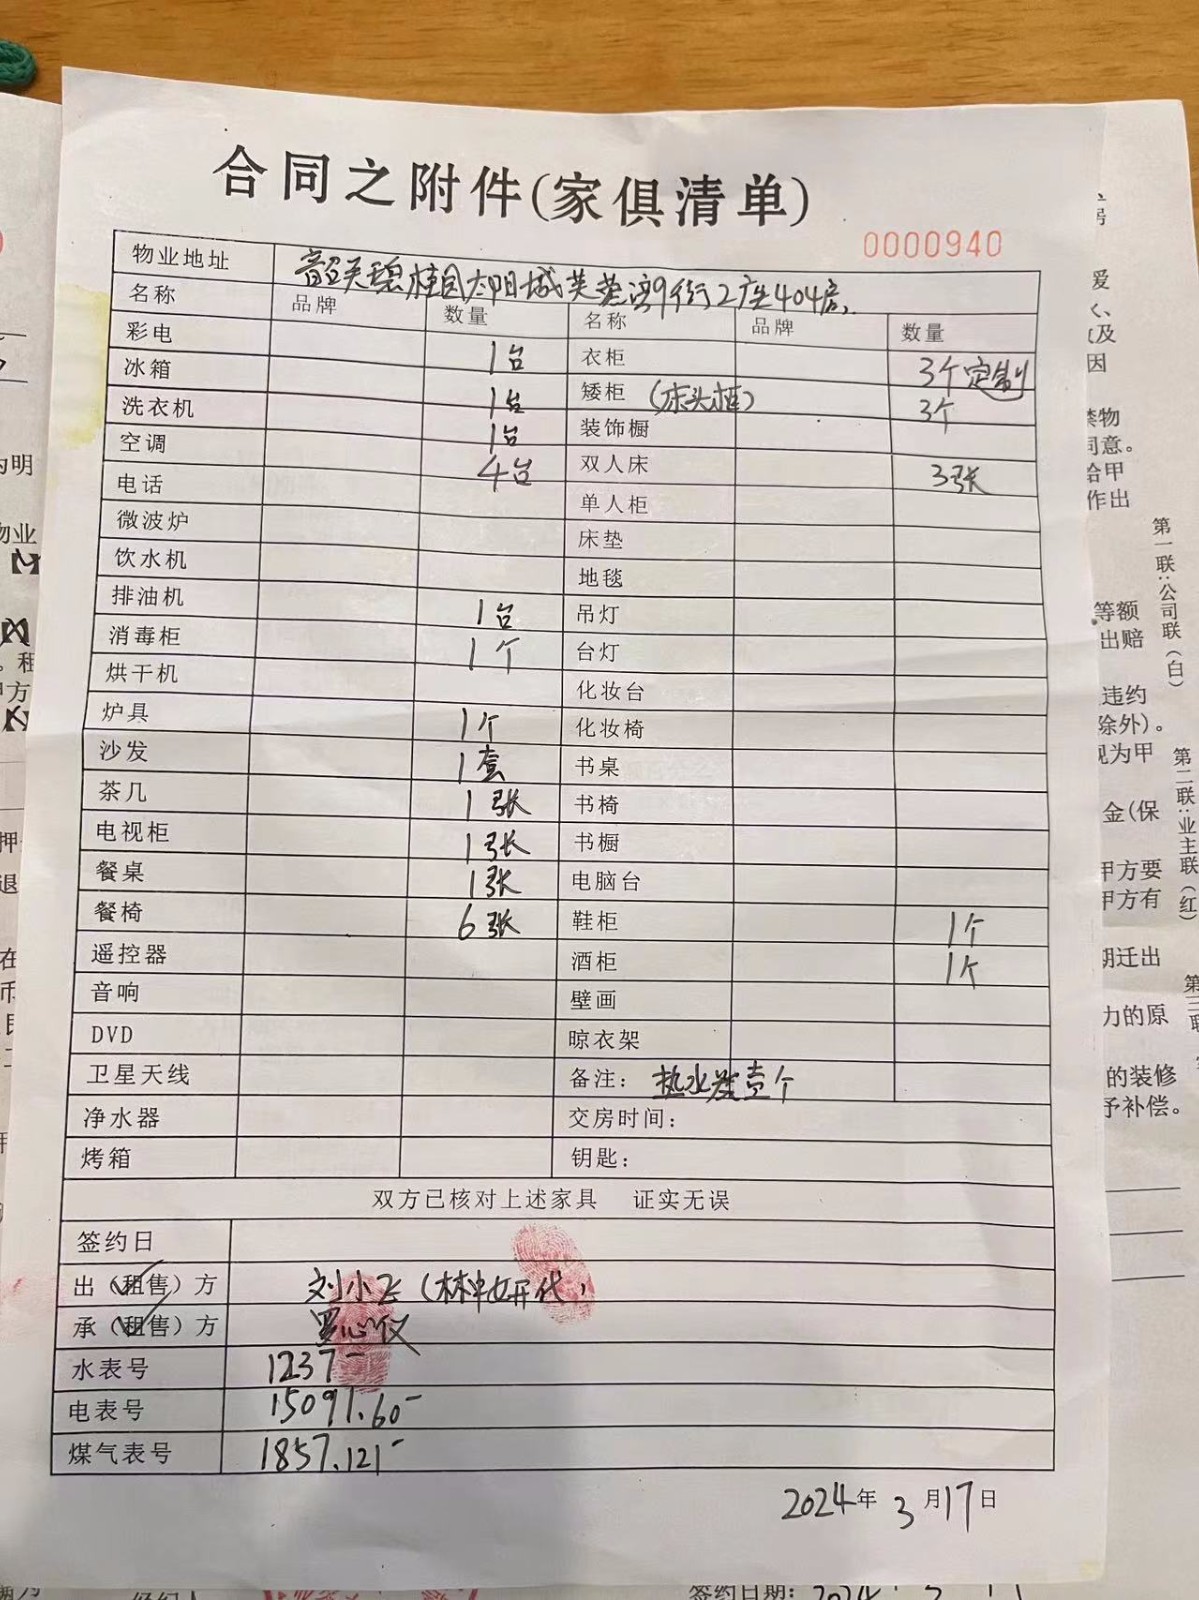 合同之附件(家俱清单)
0000940
物业地址 韶关碧桂园太阳城芙蓉湾9街2座404房
名称 品牌 数量 名称 品牌 数量
彩电 1台 衣柜 3个定制
冰箱 1台 矮柜 (床头柜) 3个
洗衣机 1台 装饰橱
空调 4台 双人床 3张
电话 单人柜
微波炉 床垫
饮水机 地毯
排油机 1台 吊灯
消毒柜 1个 台灯
烘干机 化妆台
炉具 1个 化妆椅
沙发 1套 书桌
茶几 1张 书椅
电视柜 1张 书橱
餐桌 1张 电脑台
餐椅 6张 鞋柜 1个
遥控器 酒柜 1个
音响 壁画
DVD 晾衣架
卫星天线 备注：热水器壹个
净水器 交房时间：
烤箱 钥匙：
双方已核对上述家具 证实无误
签约日
出（租售）方 刘小飞（林中妍代）
承（租售）方 罗心仪
水表号 1237-
电表号 15091.60-
煤气表号 1857.121-
2024年3月17日
第一联:公司联(白)
第二联:业主联(红)
第三联
居
爱
及
因
禁物
同意。
给甲
作出
等额
出赔
违约
除外)。
视为甲
金(保
甲方要
甲方有
期迁出
力的原
的装修
予补偿。
为明
物业
。租
甲方
押
退
在
币
签约日期: 2024